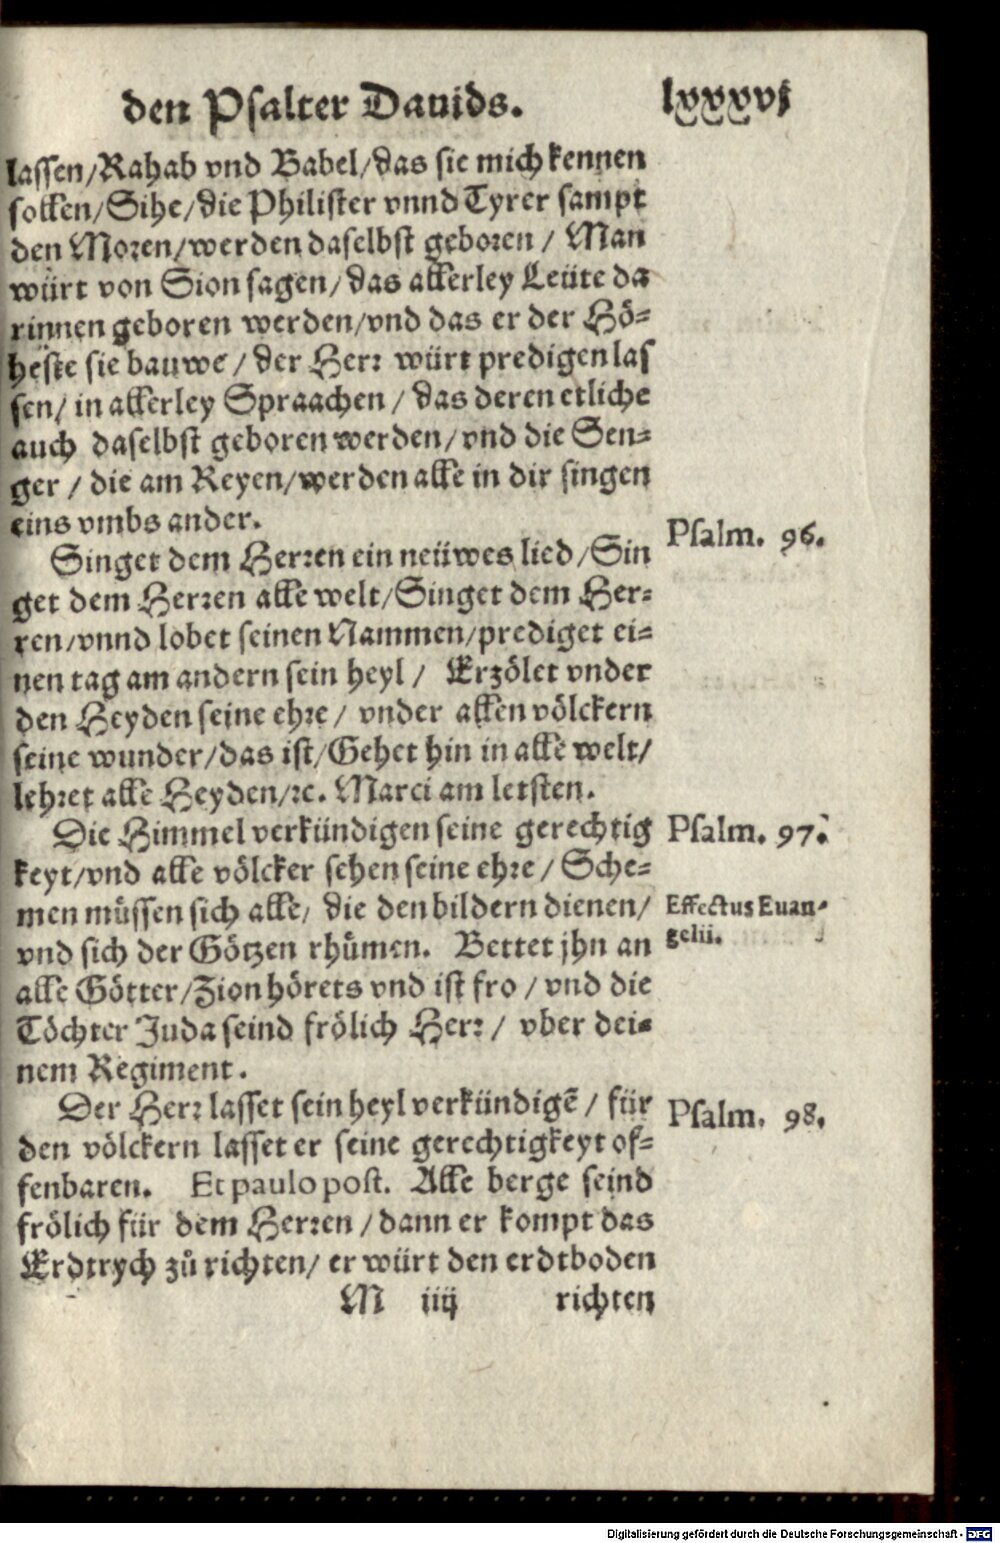 den Psalter Dauids.
lxxxvj
lassen/Rahab vnd Babel/das sie mich kennen
sollen/Sihe/die Philister vnnd Tyrer sampt
den Moren/werden daselbst geboren / Man
würt von Sion sagen/das allerley Leüte da
rinnen geboren werden/vnd das er der Hö=
heste sie bauwe / der Herr würt predigen las
sen/ in allerley Spraachen / das deren etliche
auch daselbst geboren werden/vnd die Sen=
ger / die am Reyen/werden alle in dir singen
eins vmbs ander.
Singet dem Herren ein neüwes lied/Sin
Psalm. 96.
get dem Herren alle welt/Singet dem Her=
ren/vnnd lobet seinen Nammen/prediget ei=
nen tag am andern sein heyl / Erzölet vnder
den Heyden seine ehre / vnder allen völckern
seine wunder/das ist/Gehet hin in alle welt/
lehret alle Heyden/rc. Marci am letsten.
Die Himmel verkündigen seine gerechtig
Psalm. 97.
keyt/vnd alle völcker sehen seine ehre / Sche=
men müssen sich alle/ die den bildern dienen/
Effectus Euan-
vnd sich der Götzen rhümen. Bettet jhn an
gelii.
alle Götter/Zion hörets vnd ist fro / vnd die
Töchter Juda seind frölich Herr / vber dei=
nem Regiment.
Der Herr lasset sein heyl verkündigē / für
Psalm. 98.
den völckern lasset er seine gerechtigkeyt of=
fenbaren. Et paulo post. Alle berge seind
frölich für dem Herren / dann er kompt das
Erdtrych zů richten/ er würt den erdtboden
M iiij richten
Digitalisierung gefördert durch die Deutsche Forschungsgemeinschaft - DFG